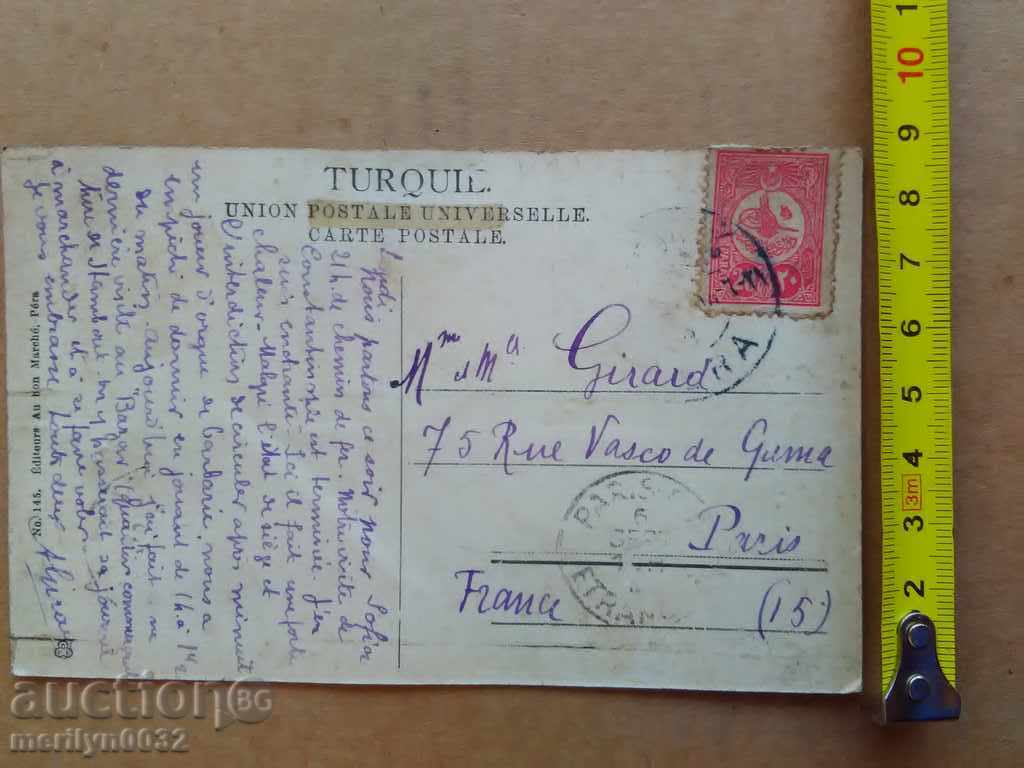 TURQUIE.
UNION POSTALE UNIVERSELLE.
CARTE POSTALE.
Lundi
Nous partons ce soir pour Sofia
21h de chemin de fer. Notre visite de
Constantinople est terminée. J'en
suis enchanté. Ici il fait une forte
chaleur. Malgré l'état de siège et
l'interdiction de circuler après minuit
un joueur d'orgue de barbarie nous a
empêché de dormir en jouant de 1h à
du matin. Aujourd'hui j'ai fait une
dernière visite au "Bazar" quartier commerçant
de Stamboul on y passerait sa journée
à marchander et à se faire voler
Je vous embrasse toutes deux
No. 145. Editeurs Au bon Marché, Péra
Mme & Ma Girard
75 Rue Vasco de Gama
Paris
France (15)
PARIS
6
ETRAN
RA
٢٠
1
10
9
8
7
6
5
4
3m
3
2
auction BG
merilyn0032